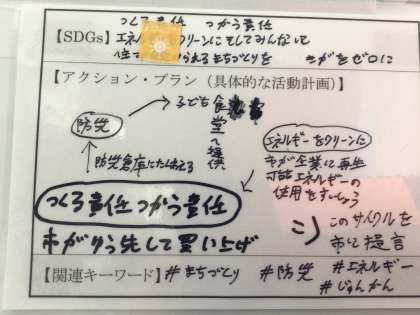 つくる責任 つかう責任
【SDGs】エネルギーをクリーンにそしてみんなに
住 られるまちづくりを きがをゼロに
【アクション・プラン（具体的な活動計画）】
防災
子ども食堂へ提供
防災倉庫にたくわえる
エネルギーをクリーンに
市が企業に再生
可能エネルギーの
使用をすいしょう
つくる責任 つかう責任
市がゆう先して買い上げ
このサイクルを
市に提言
【関連キーワード】#まちづくり #防災 #エネルギー
#じゅんかん